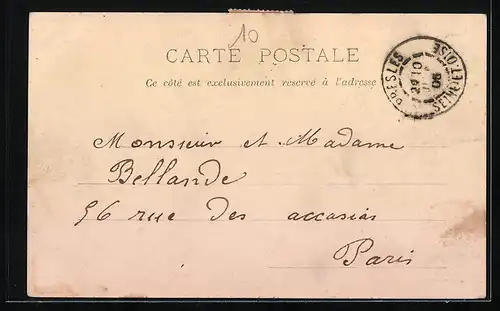 10
CARTE POSTALE
Ce côté est exclusivement reservé à l'adresse
PRESLES
SEINE-ET-OISE
Monsieur et Madame
Bellande
56 rue des accasias
Paris